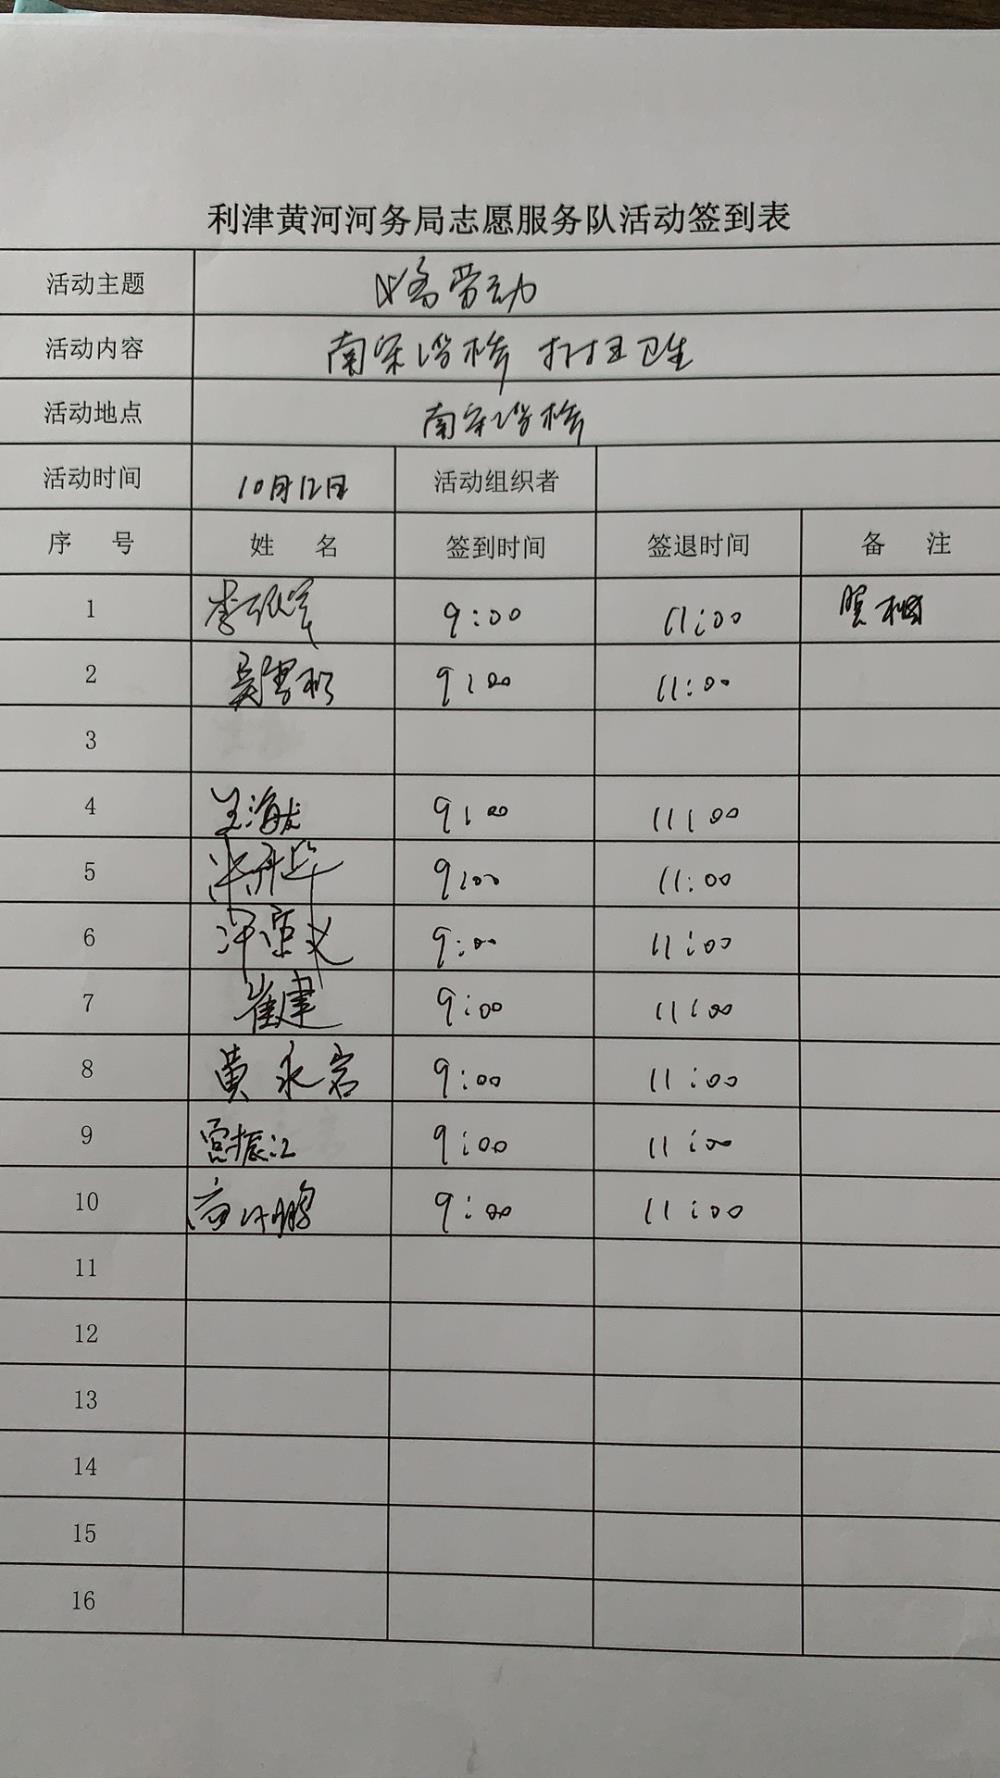 利津黄河河务局志愿服务队活动签到表
活动主题 义务劳动
活动内容 南宋浮桥 打扫卫生
活动地点 南宋浮桥
活动时间 10月12日 活动组织者
序 号 姓 名 签到时间 签退时间 备 注
1 9:00 11:00 照相
2 9:00 11:00
3
4 王海龙 9:00 11:00
5 9:00 11:00
6 9:00 11:00
7 崔建 9:00 11:00
8 黄永岩 9:00 11:00
9 宫振江 9:00 11:00
10 9:00 11:00
11
12
13
14
15
16